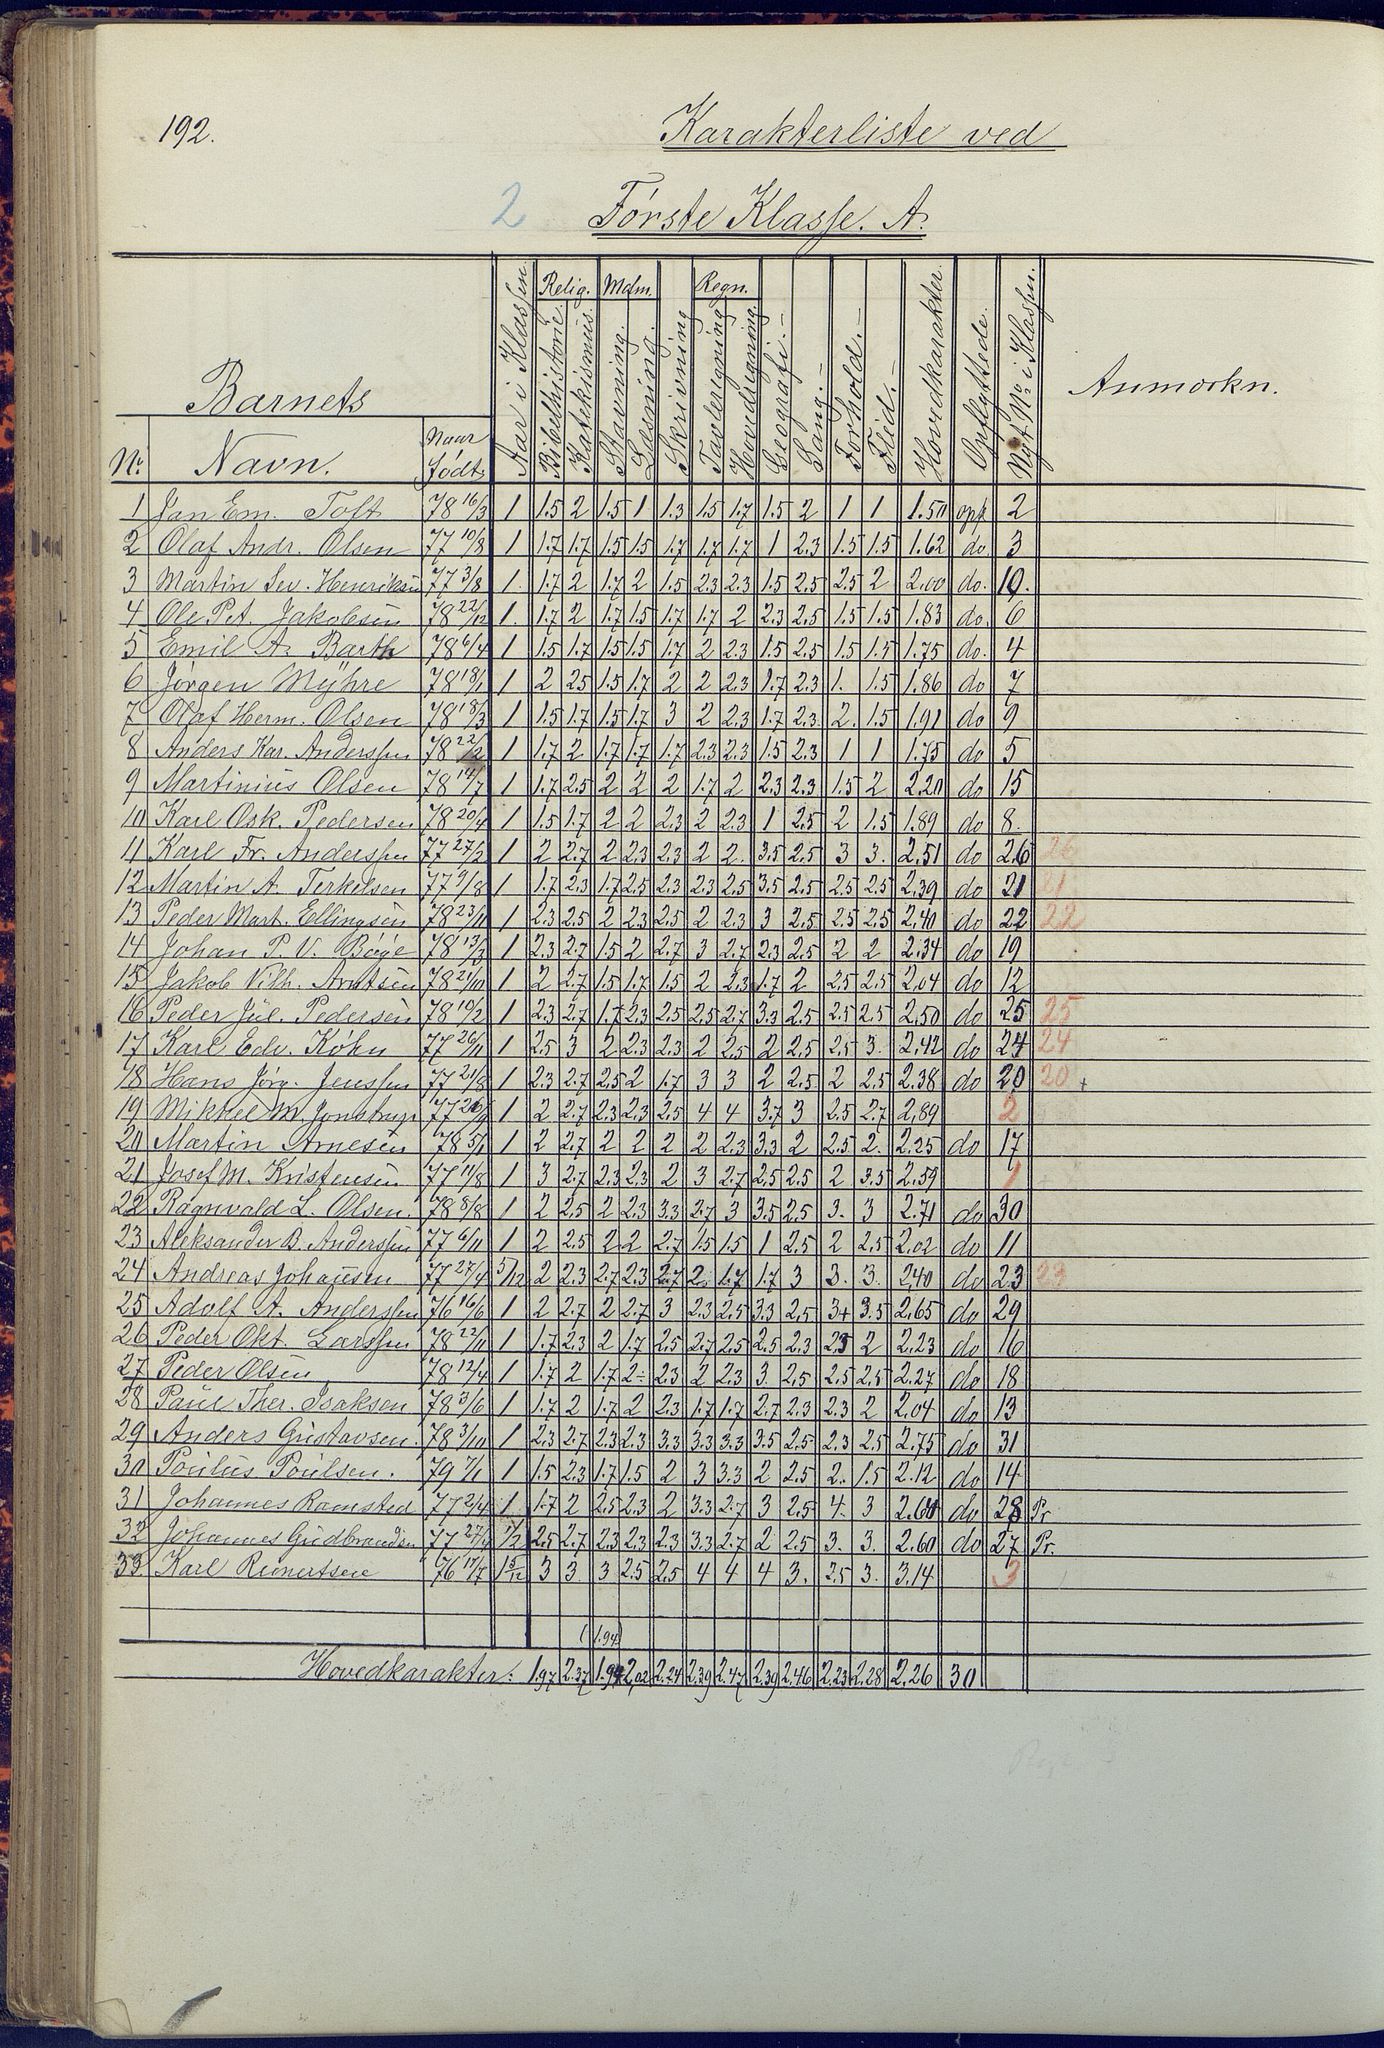 192.
Karakterliste ved
2 Første Klasse. A.
Barnets
No Navn. Naar Født. Aar i Klassen. Relig. Bibelhistorie. Katekismus. Mdm. Stavning. Læsning. Skrivning Regn. Tavleregning Hovedregning. Geografi.- Sang.- Forhold.- Flid.- Hovedkarakter. Opflyttede. Nyt No i Klassen. Anmærkn.
1 Jan Em. Toft 78 16/3 1 1.5 2 1.5 1 1.3 1.5 1.7 1.5 2 1 1 1.50 opf 2
2 Olaf Andr. Olsen 77 10/8 1 1.7 1.7 1.5 1.5 1.7 1.7 1.7 1 2.3 1.5 1.5 1.62 do 3
3 Martin Sev. Henriksen 77 3/8 1. 1.7 2 1.7 2 1.5 2.3 2.3 1.5 2.5 2.5 2 2.00 do. 10.
4 Ole Pet. Jakobsen 78 22/12 1. 1.7 2 1.7 1.5 1.7 1.7 2 2.3 2.5 1.5 1.5 1.83 do. 6
5 Emil A. Barth 78 6/4 1 1.5 1.7 1.5 1.5 1.7 2 2.3 1.5 2.5 1.5 1.5 1.75 do. 4
6 Jørgen Myhre 78 18/1 1 2 2.5 1.5 1.7 2 2 2.3 1.7 2.3 1. 1.5 1.86 do 7
7 Olaf Herm. Olsen 78 18/3 1 1.5 1.7 1.5 1.7 3 2 2.3 1.7 2.3 2. 1.5 1.91 do 9
8 Anders Kar. Anderssen 78 22/2 1 1.7 2 1.7 1.7 1.7 2.3 2.3 1.5 2.3 1 1 1.75 do 5
9 Martinius Olsen 78 14/7 1 1.7 2.5 2 2 2 1.7 2 2.3 2.3 1.5 2 2.20 do 15
10 Karl Osk. Pedersen 78 20/4 1 1.5 1.7 2 2 2.3 2 2.3 1 2.5 2 1.5 1.89 do 8.
11 Karl Fr. Anderssen 77 27/2 1 2 2.7 2 2.3 2.3 2 2. 3.5 2.5 3 3. 2.51 do 26 26
12 Martin A. Terkelsen 77 9/8 1 1.7 2.3 1.7 2.5 2.3 2.3 2.5 3.5 2.5 2.5 2.5 2.39 do 21 21
13 Peder Mart. Ellingsen 78 23/11 1 2.3 2.5 2 2.3 2.5 2 2.3 3 2.5 2.5 2.5 2.40 do 22 22
14 Johan P. V. Bøye 78 13/3 1 2.3 2.7 1.5 2 2.7 3 2.7 2.3 2.5 2 2 2.34 do 19
15 Jakob Vilh. Arntsen 78 21/10 1 2 2.7 1.5 1.7 1.5 2 2.3 1.7 2 2.5 2.5 2.04 do 12
16 Peder Jul. Pedersen 78 10/2 1 2.3 2.7 1.7 2.3 2.5 2.5 2.7 3.3 2.5 2.5 2.5 2.50 do 25 25
17 Karl Edv. Køhn 77 26/11 1 2.5 3 2 2.3 2.3 2 2.5 2 2.5 2.5 3. 2.42 do 24 24
18 Hans Jørg. Jenssen 77 21/8 1 2.3 2.7 2.5 2 1.7 3 3 2 2.5 2 2.5 2.38 do 20 20 +
19 M. Jonstrup 1 2 2.7 2.3 2.3 2.5 4 4 3.7 3 2.5 2.7 2.89 2
20 Martin Arnesen 78 5/1 1 2 2.7 2 2 2 2 2.3 3.3 2 2.5 2. 2.25 do 17
21 Josef M. Kristensen 77 11/8 1 3 2.7 2.3 2.3 2 3 2.7 2.5 2.5 2 3.5 2.59 1
22 Ragnvald L. Olsen. 78 8/8 1 2 2.5 2 2.3 3.3 2.7 3 3.5 2.5 3. 3 2.71 do 30
23 Aleksander B. Anderssen 77 6/11 1 2 2.5 2 2 2.7 1.5 1.5 1 2.5 2 2.5 2.02 do 11
24 Andreas Johansen 77 27/4 5/12 2 2.3 2.7 2.3 2.7 2. 1.7 1.7 3 3. 3. 2.40 do 23 23
25 Adolf A. Anderssen 76 16/6 1 2 2.7 2 2.7 3 2.3 2.5 3.3 2.5 3+ 3.5 2.65 do 29
26 Peder Okt. Larssen 78 22/11 1 1.7 2.3 2 1.7 2.5 2.7 2.5 2.5 2.3 2.5 2 2.23 do 16
27 Peder Olsen 78 12/4 1 1.7 2 1.7 2- 2.3 2 2.3 3 2.5 2.5 2.5 2.27 do 18
28 Paul Ther. Isaksen 78 3/6 1 1.7 2 1.7 2 2.3 1.7 1.7 2.7 2.3 2.3 2 2.04 do 13
29 Anders Gustavsen. 78 3/10 1 2.3 2.7 2.3 2.3 3.3 3.3 3.3 3.5 2.5 2.3 2.5 2.75 do 31
30 Poulus Poulsen. 79 7/1 1 1.5 2.3 1.7 1.5 2 3 3.3 2 2.5 2. 1.5 2.12 do 14
31 Johannes Ramstad 77 2/4 1 1.7 2 2.5 2.3 2 3.3 2.7 3 2.5 4. 3 2.64 do 28 Pr
32 Johannes Gudbrandsen 77 1/2 2.5 2.7 2.3 2.3 2.3 3.3 2.7 2 2.5 3. 3. 2.60 do 27 Pr.
33 Karl Reinertsen 76 17/7 1 5/12 3 3 3 2.5 2.5 4 4 4 3. 2.5 3. 3.14 3
(1.94)
Hovedkarakter: 1.97 2.37 1.94 2.02 2.24 2.39 2.47 2.39 2.46 2.23 2.28 2.26 30